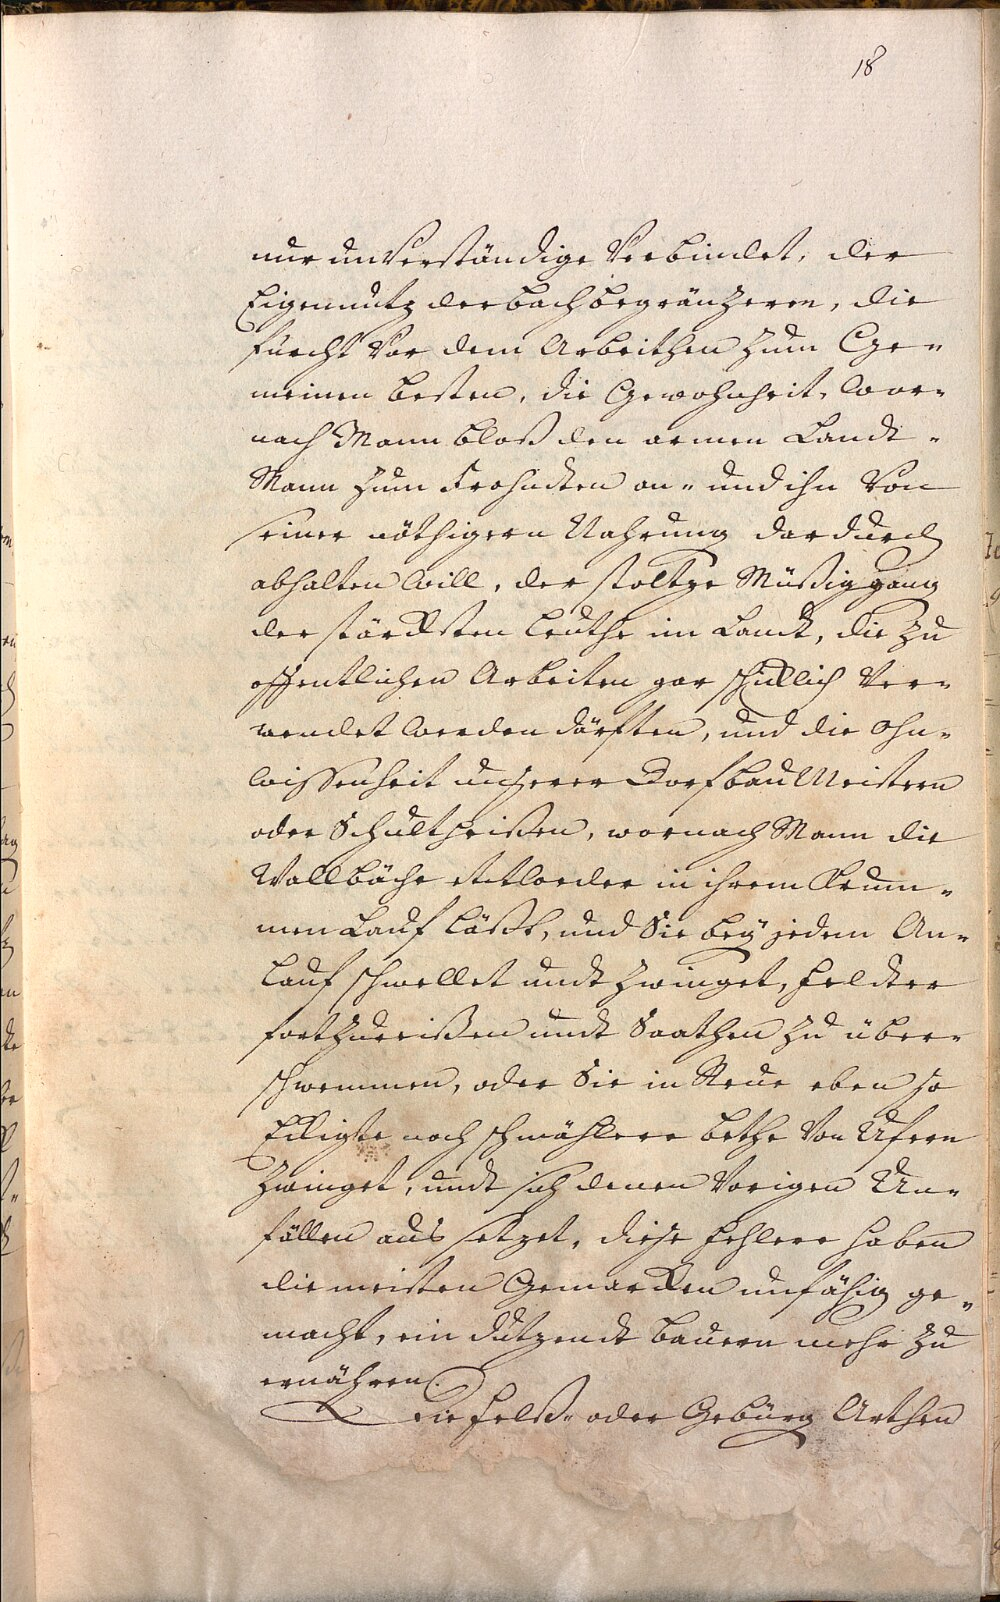 18
nur unverständige Verbindet, der
Eigennutz der bachbegränzeren, die
furcht Vor dem Arbeithen zum Ge-
meinen besten, die Gewohnheit, wor-
nach Mann bloß den armen Landt-
Mann zum Frohndten an- und ihn Von
seiner nöthigern Nahrung dardurch
abhalten will, der stoltze Müßiggang
der stärcksten leuthe im Landt, die zu
offentlichen Arbeiten gar schicklich Ver-
wendet werden dörften, und die Ohn-
wissenheit unserer Dorfbau Meistern
oder Schultheißen, wornach Mann die
Wallbäche in ihrem Krum-
men Lauf läßt, und Sie bey jedem An-
lauf schwellet undt zwinget, felder
fortzureißen undt Saathen zu über-
schwemmen, oder Sie in eben so
Eckigte noch schmählere bethe Von Ufern
zwinget, undt sich denen Vorigen Un-
fällen aus setzet, diese fehlere haben
die meisten Gemarcken unfähig ge-
macht, ein dutzendt bauern mehr zu
ernähren.
Die felß- oder Gebürg Arthen